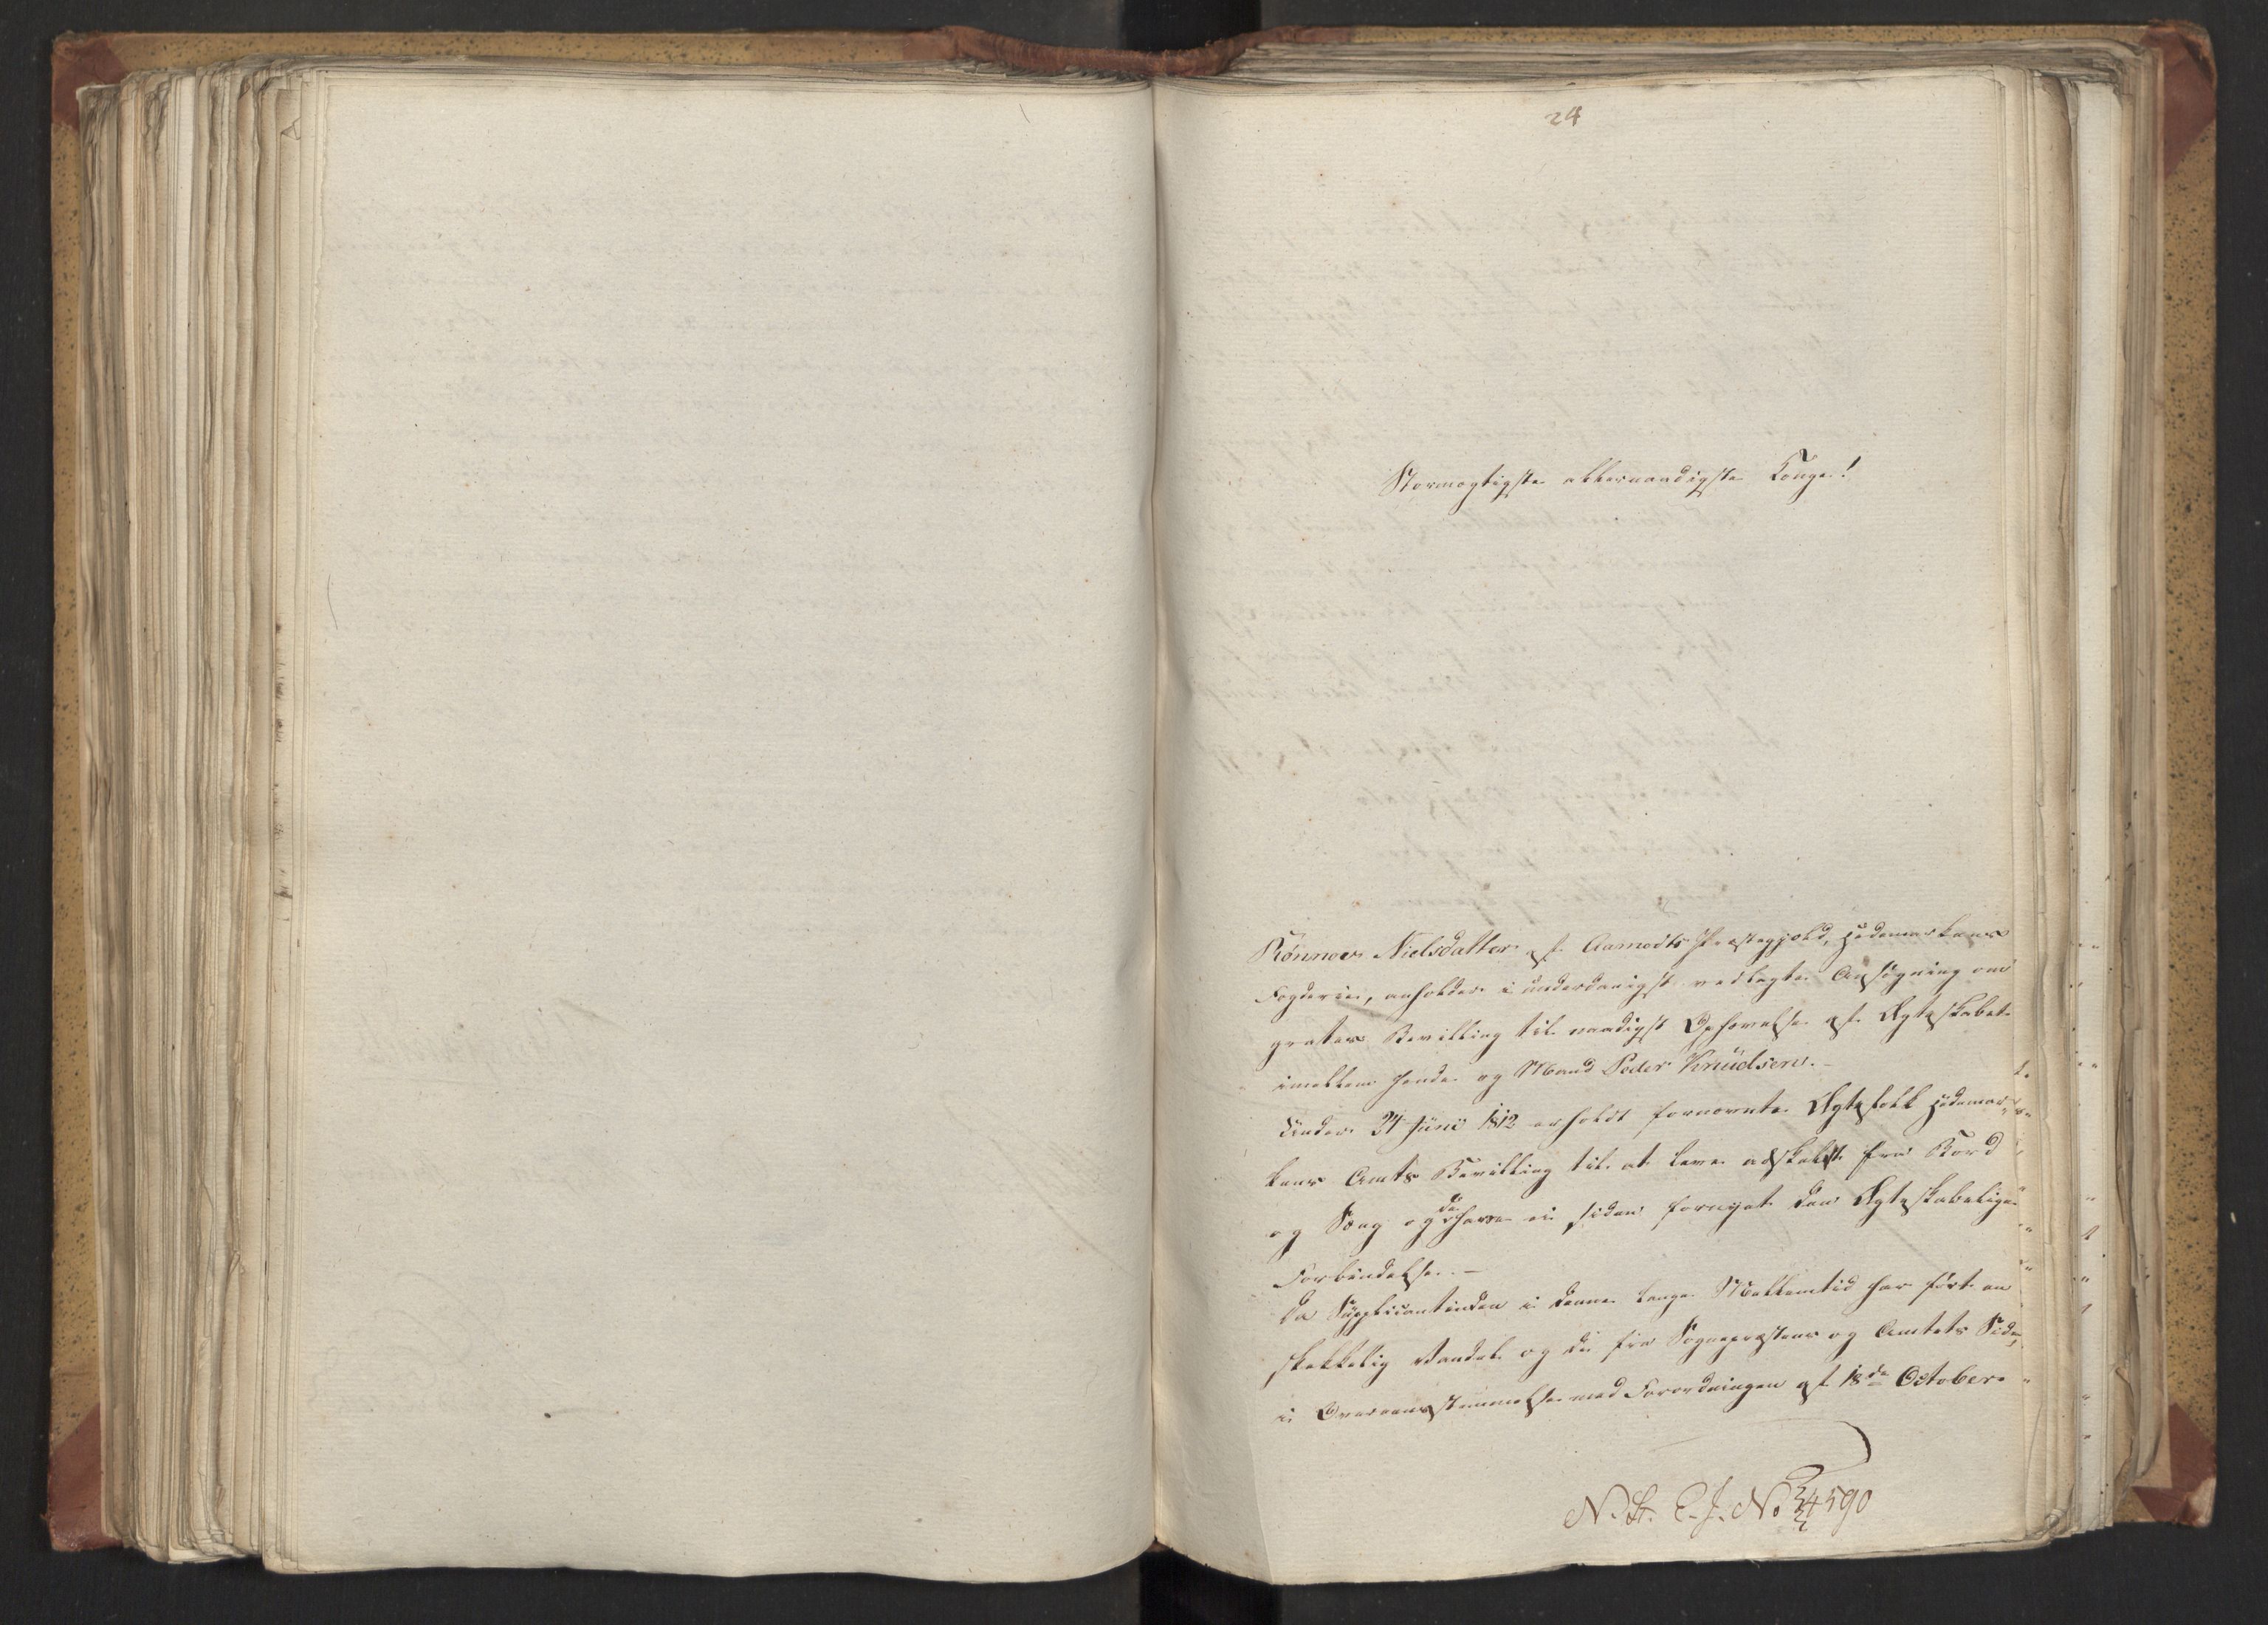 24
Stormægtigste allernaadigste Konge!
Rønnov Nielsdatter af Aamodts Præstegjeld, Hedemarkens
Fogderie, anholder i underdanigst vedlagte Ansøgning om
gratis Bevilling til naadigst Ophævelse af Ægteskabet
imellem hende og Mand Peder Knudsen. –
Under 24 Juni 1812 erholdt fornævnte Ægtefolk Hedemar-
kens Amts Bevilling til at leve adskilte fra Bord
og Seng og de have ei siden fornyet den Ægteskabelige
Forbindelse. –
Da Supplicantinden i denne lange Mellemtid har ført en
skikkelig Vandel og da fra Sognepræstens og Amtets Side,
i Overeensstemmelse med Forordningen af 18de October
N. St. E. J. No 4590